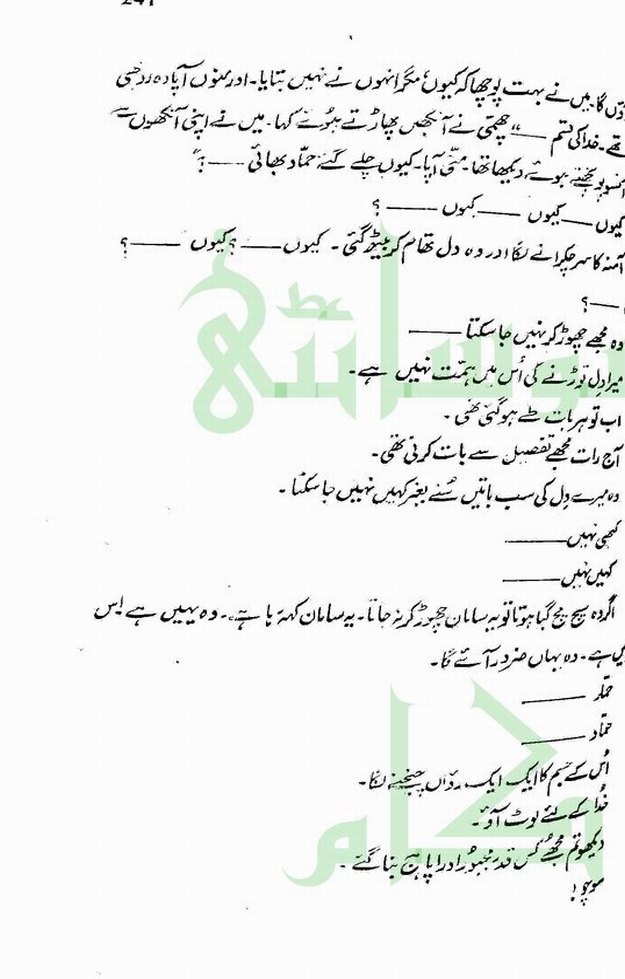 241
دوں گا۔ میں نے بہت پوچھا کہ کیوں مگر انہوں نے نہیں بتایا۔ اور منوں آپا وہ رو
تھے۔ خدا کی قسم —— " چھمی نے آنکھیں پھاڑتے ہوئے کہا۔ میں نے اپنی آنکھوں سے
آنسو پونچھتے ہوئے دیکھا تھا۔ منی آپا۔ کیوں چلے گئے حماد بھائی ——؟"
کیوں —— کیوں —— کیوں ——؟
آمنہ کا سر چکرانے لگا اور وہ دل تھام کر بیٹھ گئی۔ کیوں ——؟ کیوں ——؟
——؟
وہ مجھے چھوڑ کر نہیں جا سکتا ——
میرا دِل توڑنے کی اُس میں ہمّت نہیں ہے۔
اب تو ہر بات طے ہو گئی تھی۔
آج رات مجھے تفصیل سے بات کرنی تھی۔
وہ میرے دِل کی سب باتیں سُنے بغیر کہیں نہیں جا سکتا۔
کبھی نہیں ——
کہیں نہیں ——
اگر وہ سچ مچ گیا ہوتا تو یہ سامان چھوڑ کر نہ جاتا۔ یہ سامان کہہ رہا ہے۔ وہ یہیں ہے اِس
میں ہے۔ وہ یہاں ضرور آئے گا۔
حمّاد ——
حمّاد ——
اُس کے جسم کا ایک ایک رواں چیخنے لگا۔
خُدا کے لئے لوٹ آؤ۔
دیکھو تم مجھے کس قدر مجبور اور اپاہج بنا گئے۔
سوچو!
سوسائٹی
ڈاٹ کام